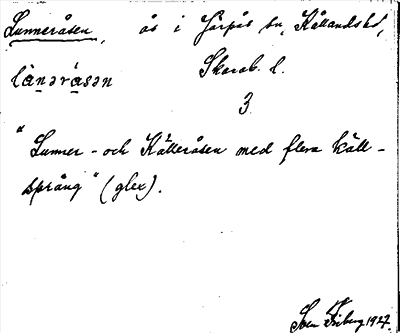 Lunneråsen, ås i Järpås sn, Kållands hd,
lànǝrásǝn Skarab. l.
3
"Lunner- och Källeråsen med flera käll-
språng" (glex).
Sven Friberg 1927.